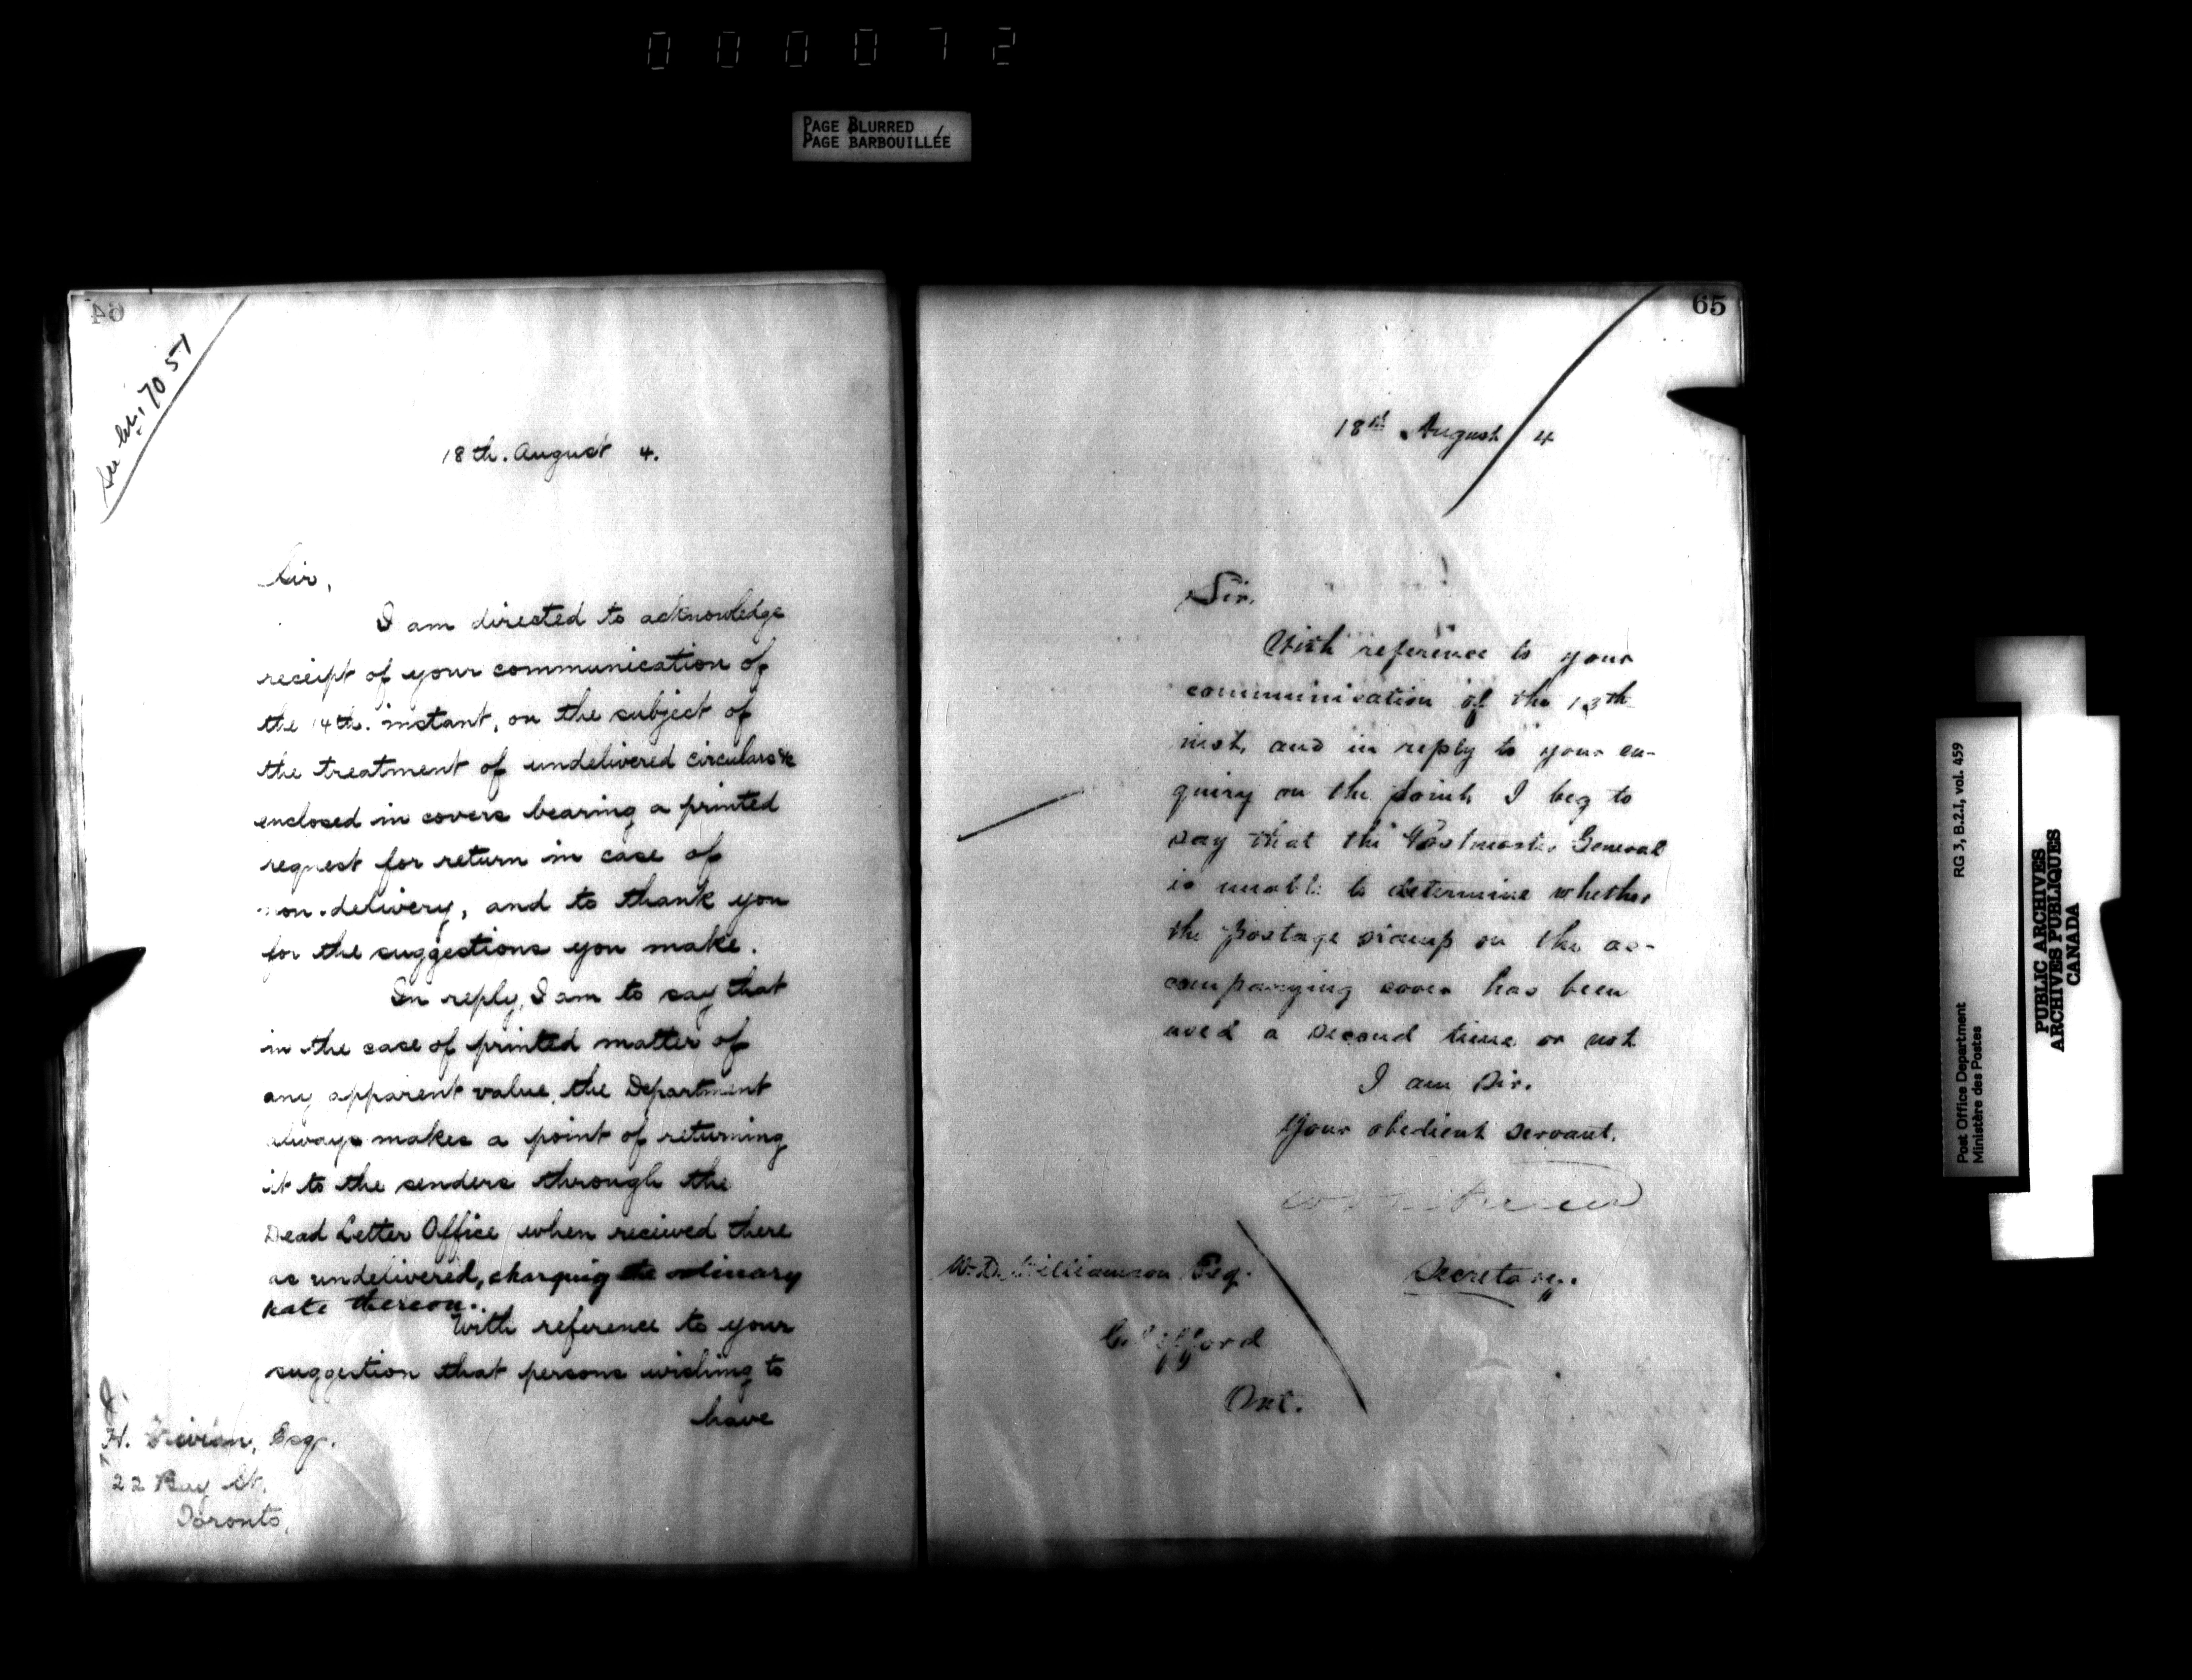 000072
PAGE BLURRED
PAGE BARBOUILLÉE
64
See 7057
18th. August 4.
Sir,
I am directed to acknowledge
receipt of your communication of
the 14th. instant, on the subject of
the treatment of undelivered circulars &c
enclosed in covers bearing a printed
request for return in case of
non-delivery, and to thank you
for the suggestions you make.
In reply, I am to say that
in the case of printed matter of
any apparent value, the Department
always makes a point of returning
it to the senders through the
Dead Letter Office when received there
as undelivered, charging the ordinary
rate thereon.
With reference to your
suggestion that persons wishing to
have
H. Esq.
22 Bay St.
Toronto,
65
18th August 4
Sir,
With reference to your
communication of the 13th
inst, and in reply to your en-
quiry on the point, I beg to
say that the Postmaster General
is unable to determine whether
the postage stamp on the ac-
companying cover has been
used a second time or not
I am Sir.
Your obedient servant.
Secretary.
W. D. Williamson Esq.
Clifford
Ont.
Post Office Department
Ministère des Postes
RG 3, B.2.1, vol. 459
PUBLIC ARCHIVES
ARCHIVES PUBLIQUES
CANADA